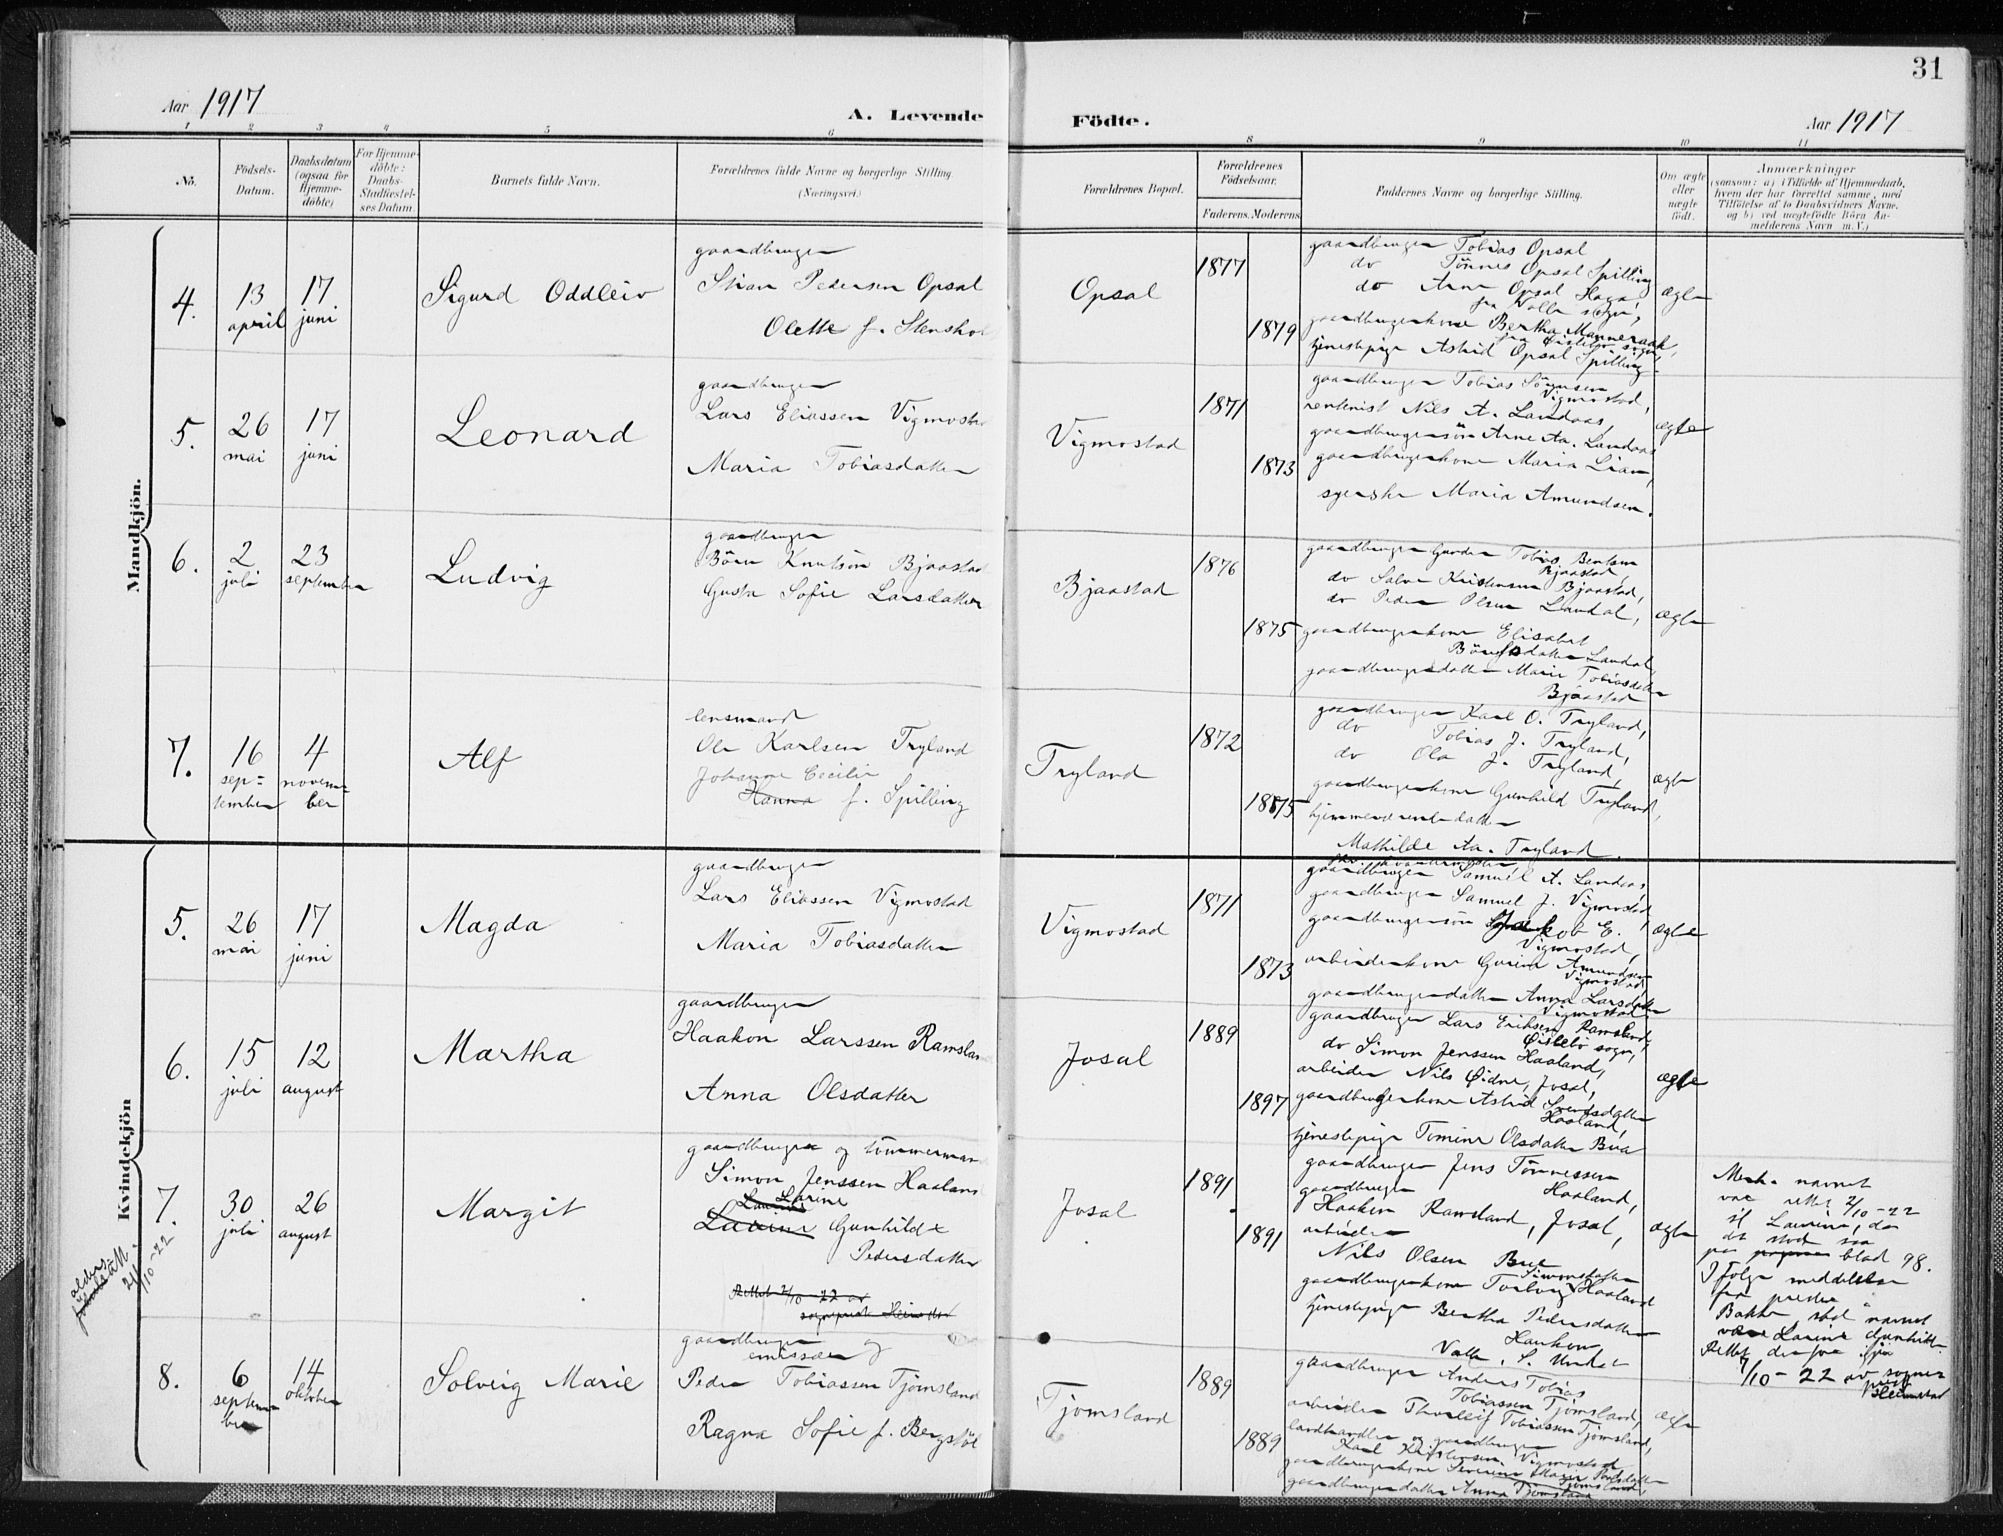 31
Aar 1917
A. Levende
Födte.
Aar 1917
1 2 3 4 5 6
8 9 10 11
No.
Födsels-
Datum.
Daabsdatum
(ogsaa for
Hjemme-
döbte)
For Hjemme-
döbte:
Daabs-
Stadfæstel-
ses Datum
Barnets fulde Navn.
Forældrenes fulde Navne og borgerlige Stilling.
(Næringsvei.)
Forældrenes Bopæl.
Forældrenes
Födselsaar.
Faderens. Moderens.
Faddernes Navne og borgerlige Stilling.
Om ægte
eller
uægte
födt.
Anmærkninger
(saasom: a) i Tilfælde af Hjemmedaab,
hvem der har forrettet samme, med
Tilföielse af to Daabsvidners Navne.
og b) ved uægtefödte Börn An-
melderens Navn m. V.)
Mandkjön.
4.
13
april
17
juni
Sigurd Oddleiv
gaardbruger
Stian Pedersen Opsal
Olette f.
Opsal
1877
1879
gaardbruger Tobias Opsal
do Tönnes Opsal Spilling
do Arne Opsal Haga,
fra Valle sogn,
gaardbrugerkone Bertha Manneraak,
fra Øislebö sogn,
tjenestepige Astrid Opsal Spilling.
ægte
5.
26
mai
17
juni
Leonard
gaardbruger
Lars Eliassen Vigmostad
Maria Tobiasdatter
Vigmostad
1871
1873
gaardbruger Tobias
Vigmostad,
rentenist Nils A. Landaas,
gaardbrugersön Arne Aa. Landaas
gaardbrugerkone Maria Lian,
syerske Maria Amundsen.
ægte
6.
2
juli
23
september
Ludvig
gaardbruger
Böre Knutson Bjaastad
Gusta Sofie Larsdatter
Bjaastad
1876
1875
gaardbruger Gunder Tobias Bentsen
Bjaastad,
do Salve Kristensen Bjaastad,
do Peder Olsen Landal,
gaardbrugerkone Elisabet
Landal,
gaardbrugerdatter Marie Tobiasdatter
Bjaastad
ægte
7.
16
sep-
tember
4
novem-
ber
Alf
lensmand
Ole Karlsen Tryland
Johanne Cecilie
Hanna f. Spilling
Tryland
1872
1875
gaardbruger Karl O. Tryland,
do Tobias J. Tryland,
do Ola J. Tryland,
gaardbrugerkone Gunhild Tryland,
hjemmeværende datter
Mathilde Aa. Tryland.
ægte
Kvindekjön
5.
26
mai
17
juni
Magda
gaardbruger
Lars Eliassen Vigmostad
Maria Tobiasdatter
Vigmostad
1871
1873
gaardbruger Samuel A. Landaas,
gaardbruger Samuel J. Vigmostad
gaardbrugersön Jakob E.
Vigmostad,
arbeiderkone Gurine Amundsen
Vigmostad,
gaardbrugerdatter Anna Larsdatter
Vigmostad
ægte
6.
15
juli
12
august
Martha
gaardbruger
Haakon Larssen Ramsland
Anna Olsdatter
Josal
1889
1897
gaardbruger Lars Eriksen Ramsland,
Øislebö sogn,
do Simon Jenssen Haaland,
arbeider Nils Øidne, Josal,
gaardbrugerkone Astrid Svendsdatter
Haaland,
tjenestepige Tomine Olsdatter Bua
ægte
7.
30
juli
26
august
Margit
gaardbruger og tömmermand
Simon Jenssen Haaland
Larine
Laurine Gunhilde
Pedersdatter
Rettet 2/10-22 av
sogneprest Heimdal
Josal
1891
1891
gaardbruger Jens Tönnessen
Haaland,
gaardbruger
Haakon Ramsland, Josal,
arbeider
Nils Olsen Bue
Simonsdatter
gaardbrugerkone Torborg Haaland
tjenestepige Bertha Pedersdatter
Valle, S. Undal
ægte
Merk. navnet
var rettet 2/10-22
til Laurine, da
det stod saa
paa blad 98.
I følge meddelelse
fra presten i
Bakke, skal navnet
være Larine Gunhilde.
Rettet derfor igjen
7/10-22 av sogne-
prest
8.
6
septem-
ber
14
oktober
Solveig Marie
gaardbruger og
emissær
Peder Tobiassen Tjömsland
Ragna Sofie f. Bergstöl
Tjömsland
1889
1889
gaardbruger Anders Tobias
Tobiassen Tjömsland,
arbeider Thorleif Tobiassen Tjömsland,
landhandler og gaardbruger
Karl Kristensen Vigmostad
gaardbrugerkone Severine Marie
Tjömsland,
gaardbrugerdatter Anna Tjömsland
ægte